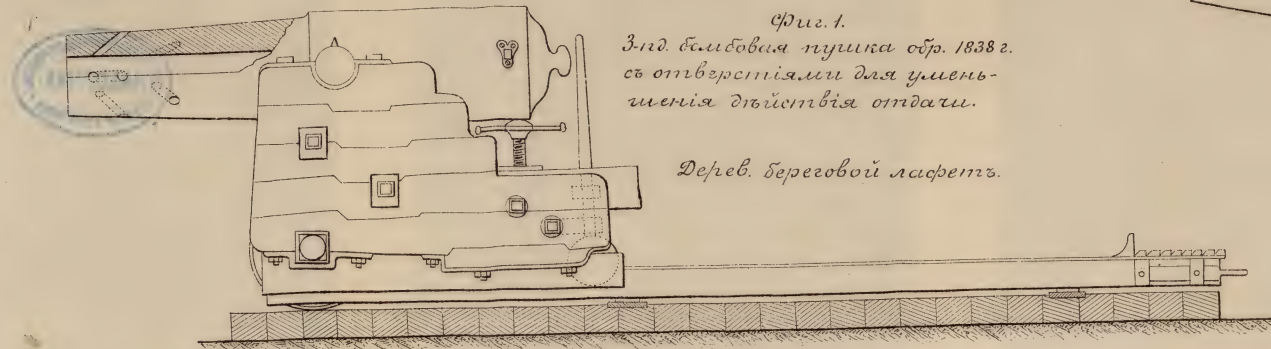 Фиг. 1.
3-пд. бомбовая пушка обр. 1838 г.
съ отверстіями для умень-
шенія дѣйствія отдачи.
Дерев. береговой лафетъ.